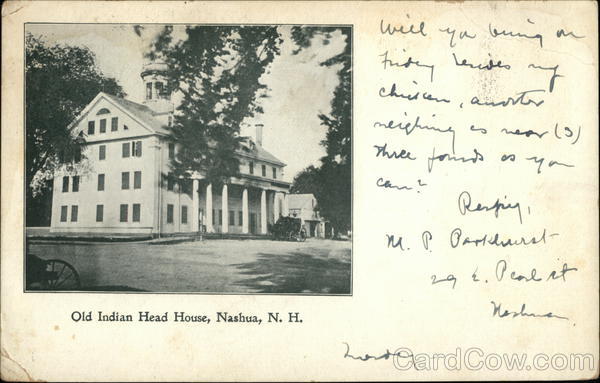 Will you bring on
Friday besides my
chicken, another
weighing as near (3)
three pounds as you
can?
Respy,
M. P. Parkhurst
29 E. Pearl st
Nashua
Monday
Old Indian Head House, Nashua, N. H.
CardCow.com